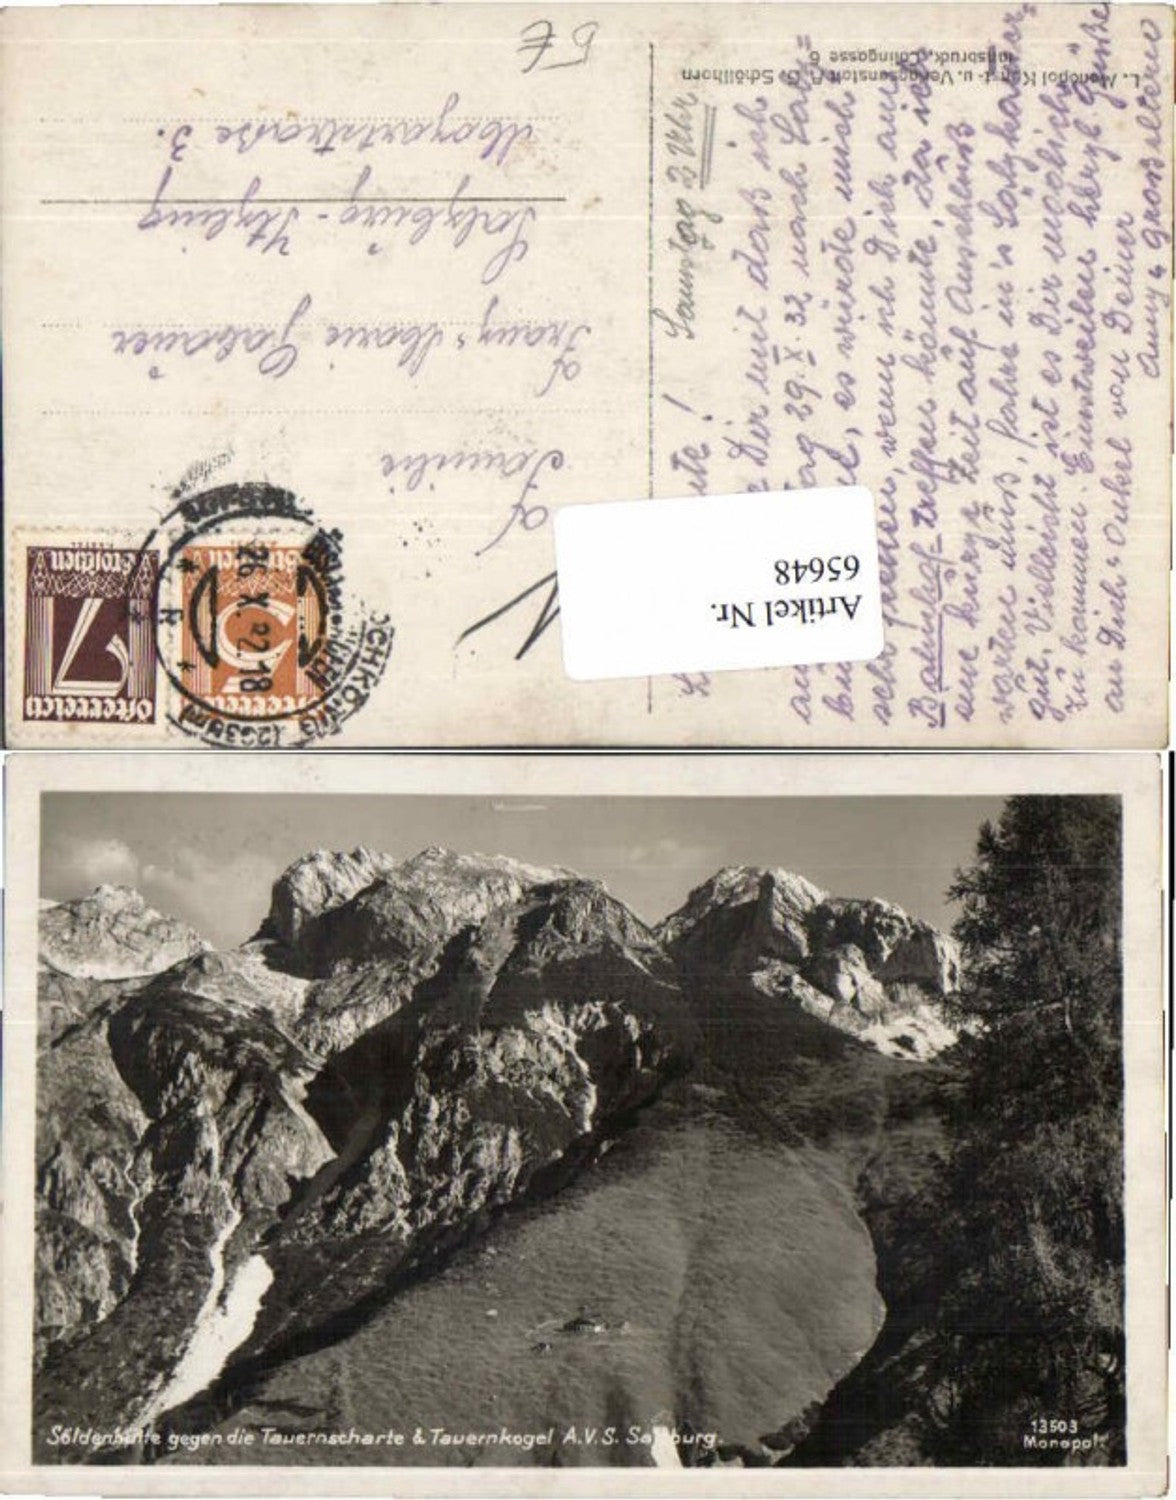 5€
L. Monopol Kunst- u. Verlagsanstalt A. G. Schöllhorn
Innsbruck, Colingasse 6
Familie
Franz & Marie
Salzburg - Itzling
Mozartstraße 3.
Samstag 2 Uhr
Dir mit daß ich
29. X. 32 nach Salz=
es würde mich
sehr freuen, wenn ich Dich am
Bahnhof treffen könnte, da ich
eine kurze Zeit auf Anschluß
warten muß, fahre in's Salzkammer=
gut. Vielleicht ist es Dir möglich
zu kommen. Einstweilen herzl. Grüße
an Dich u. Onkel von Deiner
Anny u. Großeltern
Österreich
7
Groschen
Österreich
5
Groschen
26. X. 32. 18
Artikel Nr.
65648
Söldenhütte gegen die Tauernscharte & Tauernkogel A.V.S. Salzburg.
13503
Monopol.